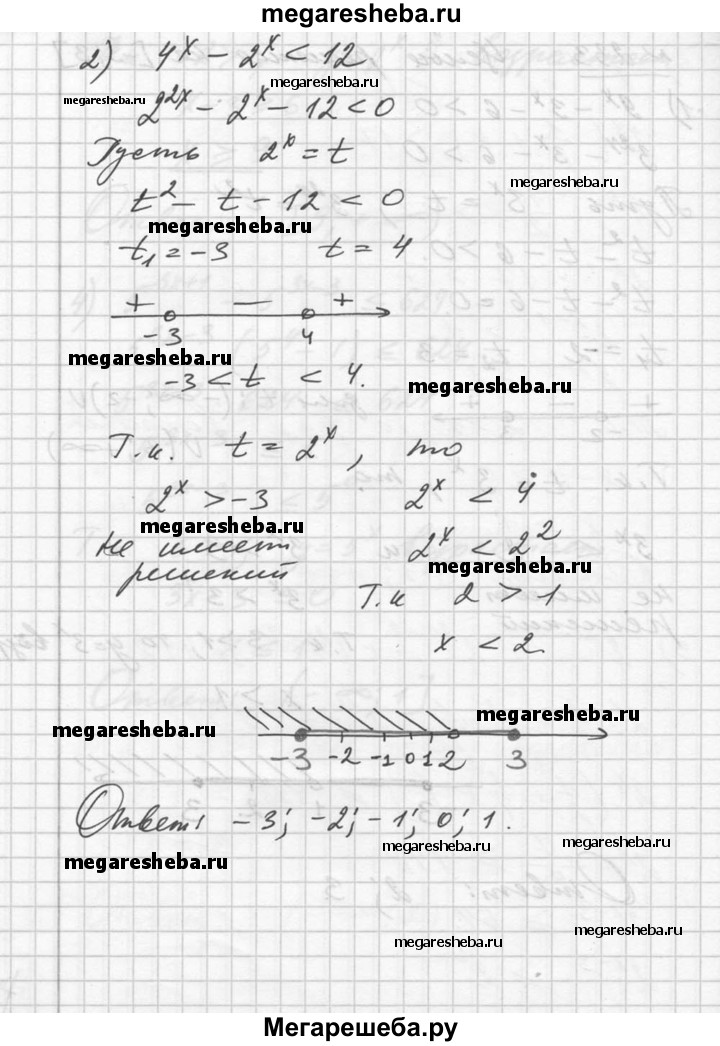 megaresheba.ru
2) 4^x - 2^x < 12
megaresheba.ru
megaresheba.ru
2^2x - 2^x - 12 < 0
Пусть 2^x = t
megaresheba.ru
t^2 - t - 12 < 0
megaresheba.ru
t1 = -3 t = 4
+ — +
-3 4
megaresheba.ru
-3 < t < 4.
megaresheba.ru
Т.к. t = 2^x, то
2^x > -3 2^x < 4
megaresheba.ru
не имеет 2^x < 2^2
megaresheba.ru
решений
Т.к 2 > 1
x < 2.
megaresheba.ru
megaresheba.ru
-3 -2 -1 0 1 2 3
Ответ: -3; -2; -1; 0; 1.
megaresheba.ru
megaresheba.ru
megaresheba.ru
megaresheba.ru
megaresheba.ru
Мегарешеба.ру